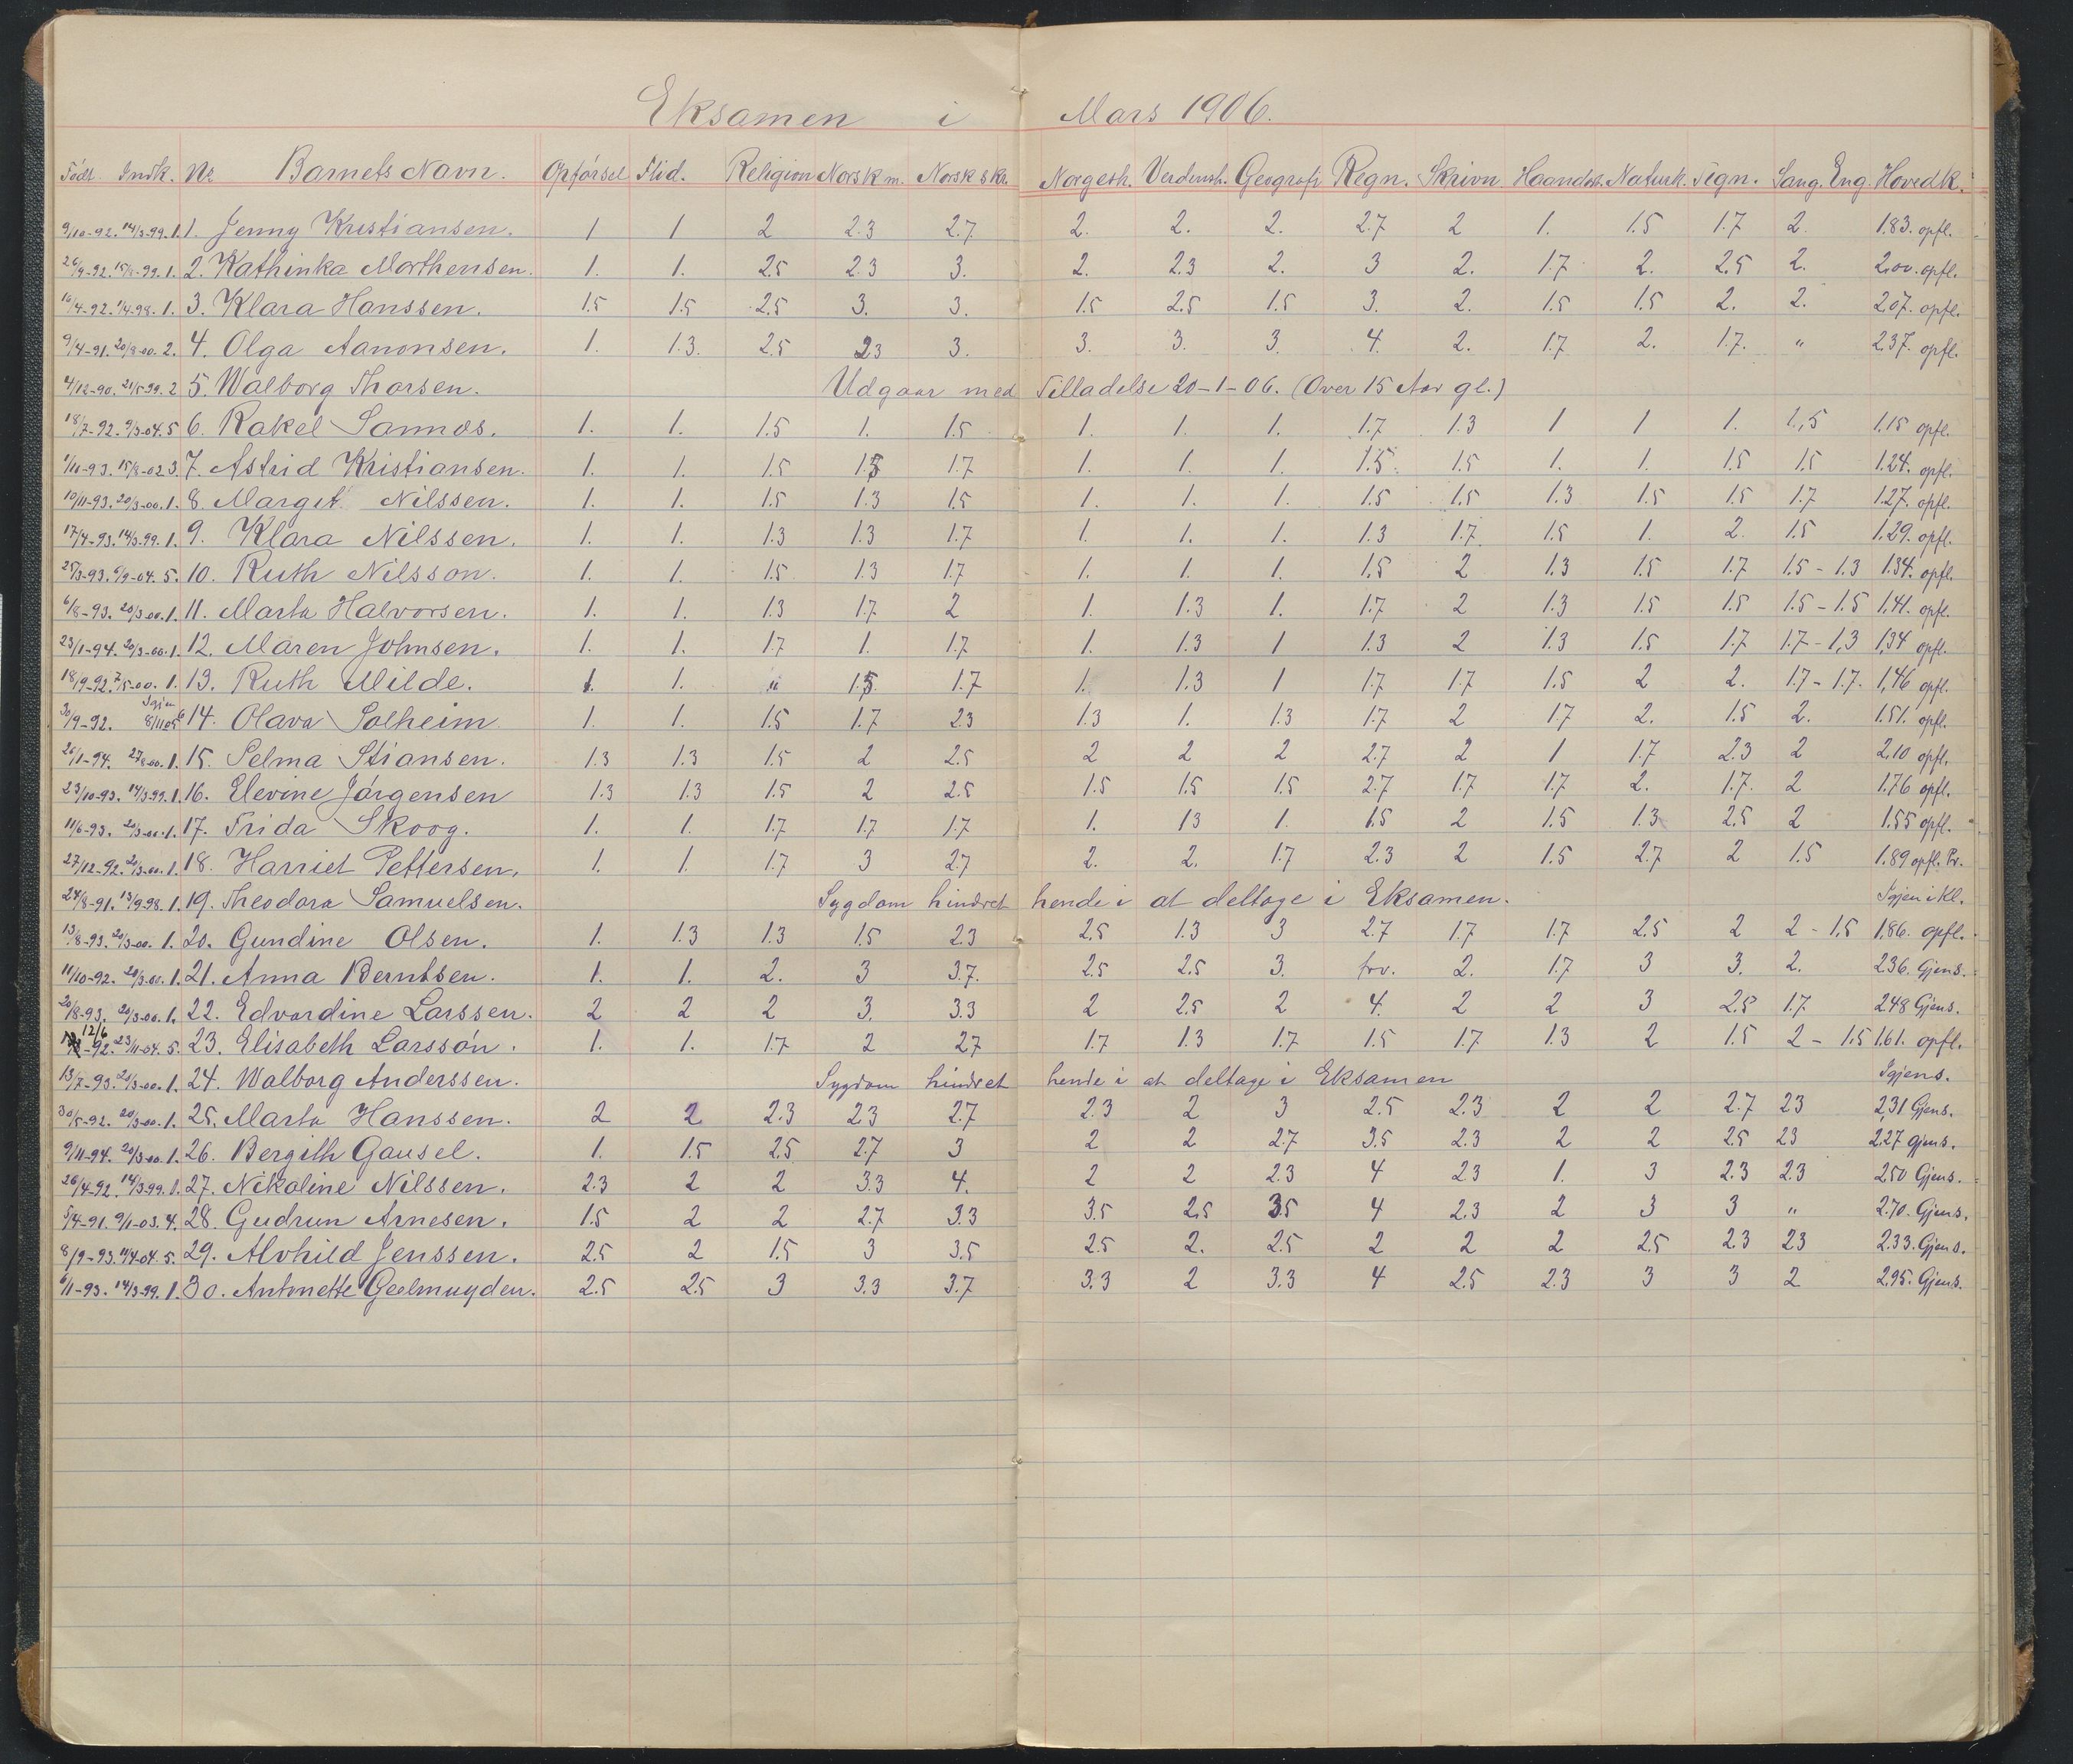 Eksamen i Mars 1906.
Født. Indk. No Barnets Navn. Opførsel Flid. Religion Norsk m. Norsk skr. Norgesh. Verdensh. Geografi Regn. Skrivn Haanda. Naturk. Tegn. Sang. Eng. Hovedk.
9/10-92. 14/3-99. 1. 1. Jenny Kristiansen. 1 1 2 2.3 2.7 2. 2. 2. 2.7 2 1. 1.5 1.7 2. 1.83. opfl.
26/9-92. 15/8-99. 1. 2. Kathinka Morthensen. 1. 1. 2.5 2.3 3. 2. 2.3 2. 3 2. 1.7 2. 2.5 2. 2,00. opfl.
16/4-92. 1/4-98. 1. 3. Klara Hanssen. 1.5 1.5 2.5 3. 3. 1.5 2.5 1.5 3. 2. 1.5 1.5 2. 2. 2.07. opfl.
9/4-91. 20/8-00. 2. 4. Olga Aanonsen. 1. 1.3. 2.5 2.3 3. 3. 3. 3. 4. 2. 1.7 2. 1.7. " 2.37. opfl.
4/12-90. 21/5-99. 2 5. Walborg Thorsen. Udgaar med Tilladelse 20-1-06. (Over 15 Aar gl.)
18/7-92. 9/3-04. 5 6. Rakel Sannes. 1. 1. 1.5 1. 1.5 1. 1. 1. 1.7 1.3 1 1 1. 1,5 1.15 opfl.
1/10-93. 15/8-02 3. 7. Astrid Kristiansen. 1. 1. 1.5 1.5 1.7 1. 1. 1. 1.5. 1.5 1. 1. 1.5 1.5 1.24. opfl.
10/11-93. 20/3-00. 1. 8. Margit Nilssen. 1. 1. 1.5 1.3 1.5 1. 1. 1. 1.5 1.5 1.3 1.5 1.5 1.7 1.27. opfl.
17/4-93. 14/3-99. 1. 9. Klara Nilssen. 1. 1. 1.3 1.3 1.7 1. 1. 1. 1.3 1.7 1.5 1. 2. 1.5 1.29. opfl.
25/3-93. 6/9-04. 5. 10. Ruth Nilsson. 1. 1. 1.5 1.3 1.7 1. 1. 1. 1.5 2 1.3 1.5 1.7 1.5 - 1.3 1.34. opfl.
6/8-93. 20/3-00. 1. 11. Marta Halvorsen. 1. 1. 1.3 1.7 2 1. 1.3 1. 1.7 2 1.3 1.5 1.5 1.5 - 1.5 1,41. opfl.
23/1-94. 20/3-00. 1. 12. Maren Johnsen. 1. 1. 1.7 1. 1.7 1. 1.3 1 1.3 2 1.3 1.5 1.7 1.7 - 1,3 1,34 opfl.
18/9-92. 7/5-00. 1. 13. Ruth Milde. 1. 1. " 1.5 1.7 1. 1.3 1 1.7 1.7 1.5 2 2. 1.7 - 1.7. 1,46 opfl.
30/9-92. Igjen 8/11 05 6 14. Olava Solheim 1. 1. 1.5 1.7 2.3 1.3 1. 1.3 1.7 2 1.7 2. 1.5 2. 1.51. opfl.
26/1-94. 27/8-00. 1. 15. Selma Stiansen. 1.3 1.3 1.5 2 2.5 2 2 2 2.7 2 1 1.7 2.3 2 2,10 opfl.
23/10-93. 14/3-99. 1. 16. Elevine Jørgensen 1.3 1.3 1.5 2 2.5 1.5 1.5 1.5 2.7 1.7 1.7 2. 1.7. 2 1.76 opfl.
11/6-93. 20/3-00. 1. 17. Frida Skoog. 1. 1. 1.7 1.7 1.7 1. 1.3 1. 1.5 2 1.5 1.3 2.5 2 1.55 opfl.
27/12-92. 20/3-00. 1. 18. Harriet Pettersen. 1. 1. 1.7 3 2.7 2. 2. 1.7 2.3 2 1.5 2.7 2 1.5 1.89 opfl. Pr.
24/8-91. 13/9-98. 1. 19. Theodora Samuelsen. Sygdom hindret hende i at deltage i Eksamen. Igjen i Kl.
13/8-93. 20/3-00. 1. 20. Gundine Olsen. 1. 1.3 1.3 1.5 2.3 2.5 1.3 3 2.7 1.7 1.7 2.5 2 2 - 1,5 1,86. opfl.
11/10-92. 20/3-00. 1. 21. Anna Berntsen. 1. 1. 2. 3 3.7. 2.5 2.5 3. frv. 2. 1.7 3 3. 2. 2.36. Gjens.
20/8-93. 20/3-00. 1. 22. Edvardine Larssen. 2 2 2 3. 3.3 2 2.5 2 4. 2 2 3 2.5 1.7 2.48 Gjens.
12/6 -92. 23/11-04. 5. 23. Elisabeth Larssön. 1. 1. 1.7 2 2.7 1.7 1.3 1.7 1.5 1.7 1.3 2 1.5 2 - 1.5 1.61. opfl.
13/7-93. 20/3-00. 1. 24. Walborg Anderssen. Sygdom hindret hende i at deltage i Eksamen Igjens.
30/5-92. 20/3-00. 1. 25. Marta Hanssen. 2 2 2.3 2.3 2.7 2.3 2 3 2.5 2.3 2 2 2.7 2.3 2,31. Gjens.
9/11-94. 20/3-00. 1. 26. Bergith Gausel. 1. 1.5 2.5 2.7 3 2 2 2.7 3.5 2.3 2 2 2.5 2.3 2,27 gjens.
26/4-92. 14/3-99. 1. 27. Nikoline Nilssen. 2.3 2 2 3.3 4. 2 2 2.3 4 2.3 1. 3 2.3 2.3 2.50 Gjens.
5/4-91. 9/1-03. 4. 28. Gudrun Arnesen. 1.5 2 2 2.7 3.3 3.5 2.5 3.5 4 2.3 2 3 3 " 2.70. Gjens.
8/9-93. 11/4-04. 5. 29. Alvhild Jenssen. 2.5 2 1.5 3 3.5 2.5 2. 2.5 2 2 2 2.5 2.3 2.3 2.33. Gjens.
6/11-93. 14/3-99. 1. 30. Antonette Geelmuyden. 2.5 2.5 3 3.3 3.7 3.3 2 3.3 4 2.5 2.3 3 3 2 2,95. Gjens.